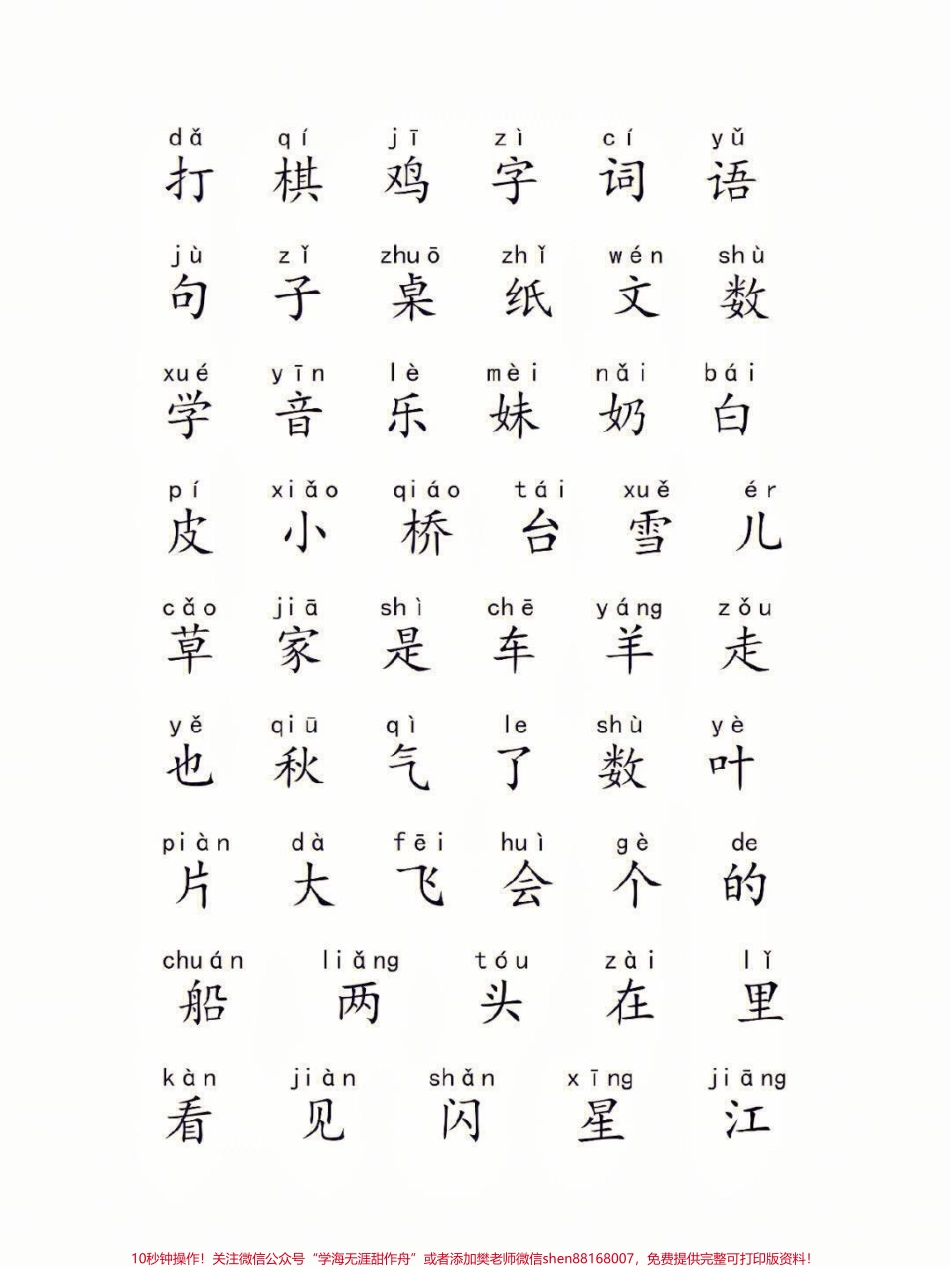 dǎ qí jī zì cí yǔ
打 棋 鸡 字 词 语
jù zǐ zhuō zhǐ wén shù
句 子 桌 纸 文 数
xué yīn lè mèi nǎi bái
学 音 乐 妹 奶 白
pí xiǎo qiáo tái xuě ér
皮 小 桥 台 雪 儿
cǎo jiā shì chē yáng zǒu
草 家 是 车 羊 走
yě qiū qì le shù yè
也 秋 气 了 数 叶
piàn dà fēi huì gè de
片 大 飞 会 个 的
chuán liǎng tóu zài lǐ
船 两 头 在 里
kàn jiàn shǎn xīng jiāng
看 见 闪 星 江
10秒钟操作！关注微信公众号“学海无涯甜作舟”或者添加樊老师微信shen88168007，免费提供完整可打印版资料！